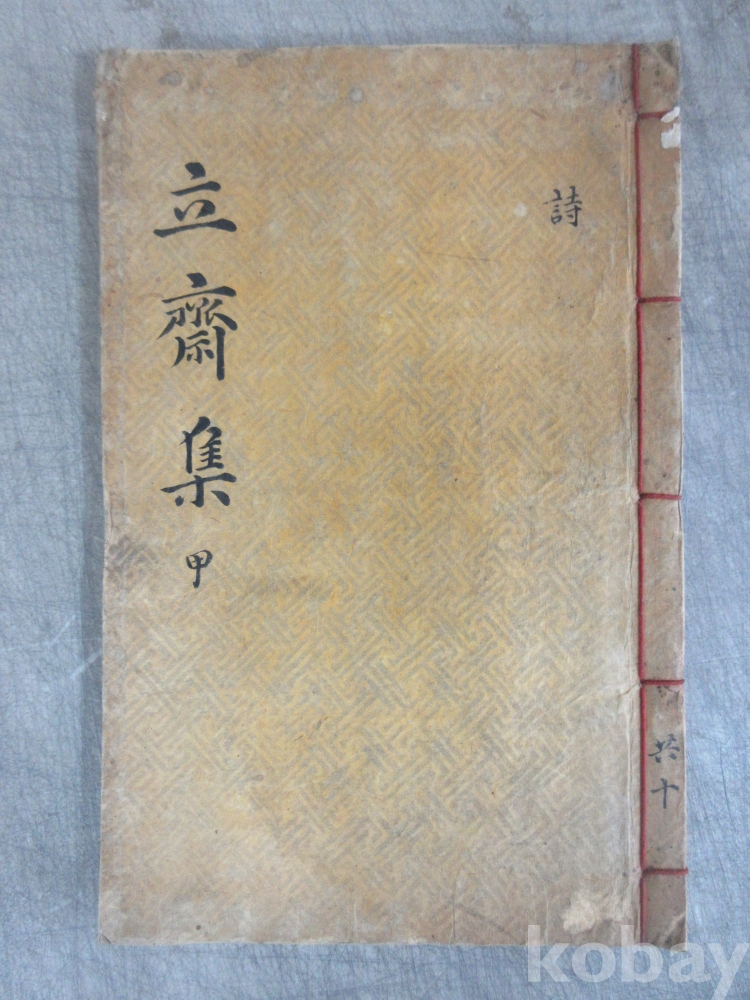 立齋集 甲
詩
共十
kobay